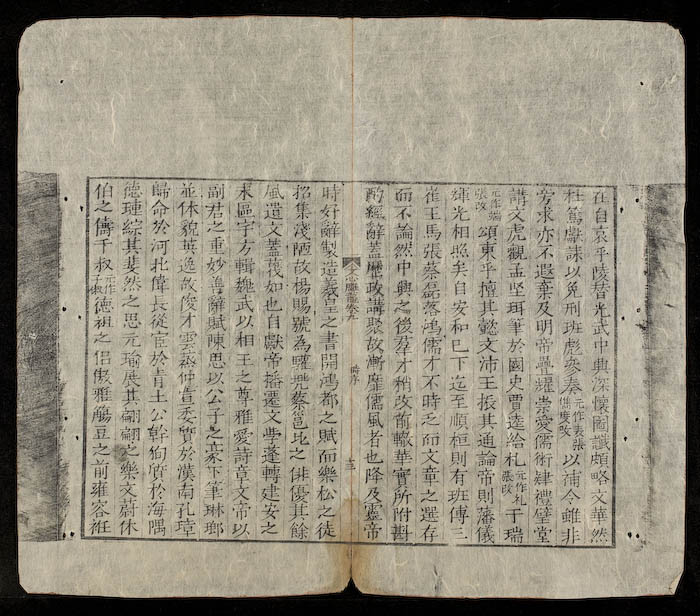 在自哀平陵替光武中興深懷圖讖頗略文華然
杜篤獻誄以免刑班彪參奏元作表張以補令雖非
旁求亦不遐棄及明帝疊耀崇愛儒術肄禮璧堂
講文虎觀孟堅珥筆於國史賈逵給札元作札張改于瑞
元作端張改頌東平擅其懿文沛王振其通論帝則藩儀
輝光相照矣自安和已下迄至順桓則有班傅三
崔王馬張蔡磊落鴻儒才不時乏而文章之選存
而不論然中興之後羣才稍改前轍華實所附斟
酌經辭蓋歷政講聚故漸靡儒風者也降及靈帝
文心雕龍卷九 時序 十三
時好辭製造羲皇之書開鴻都之賦而樂松之徒
招集淺陋故楊賜號為驩兜蔡邕比之俳優其餘
風遺文蓋蔑如也自獻帝播遷文學蓬轉建安之
末區宇方輯魏武以相王之尊雅愛詩章文帝以
副君之重妙善辭賦陳思以公子之豪下筆琳瑯
並体貌英逸故俊才雲蒸仲宣委質於漢南孔璋
歸命於河北偉長從宦於青土公幹徇質於海隅
德璉綜其斐然之思元瑜展其翩翩之樂文蔚休
伯之儔千叔元作子俶德祖之侶傲雅觴豆之前雍容袵